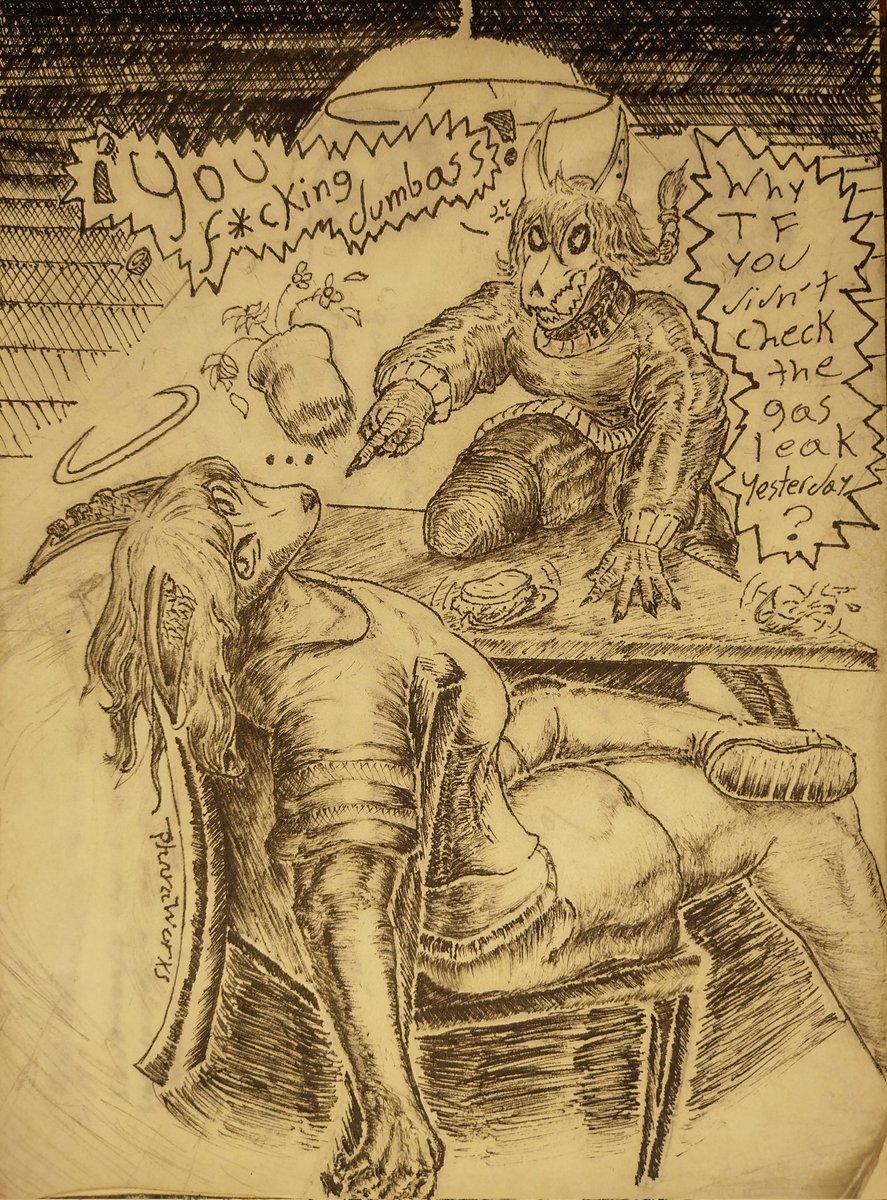 ¡You
f*cking
dumbass!
Why
TF
you
didn't
check
the
gas
leak
Yesterday
?
...
PhravaWorks